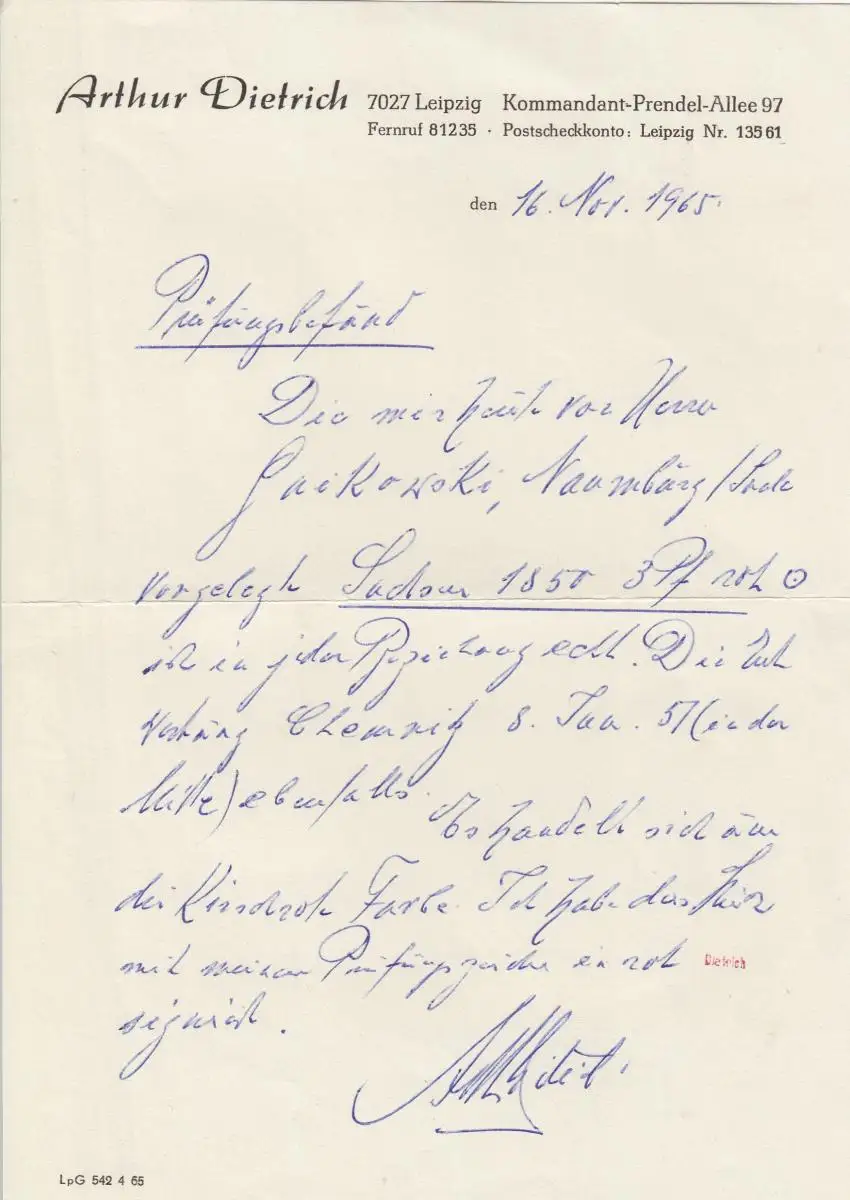 Arthur Dietrich 7027 Leipzig Kommandant-Prendel-Allee 97
Fernruf 81235 · Postscheckkonto: Leipzig Nr. 13561
den 16. Nov. 1965.
Prüfungsbefund
Die mir heute von Herrn
Gaikowski, Naumburg/Saale
vorgelegte Sachsen 1850 3 Pf rot ⊙
ist in jeder Beziehung echt. Die Ent
wertung Chemnitz 8. Jan. 51 (in der
Mitte) ebenfalls.
Es handelt sich um
die Kirschrote Farbe. Ich habe das
mit meinem Prüfungszeichen in rot Dietrich
signiert.
LpG 542 4 65